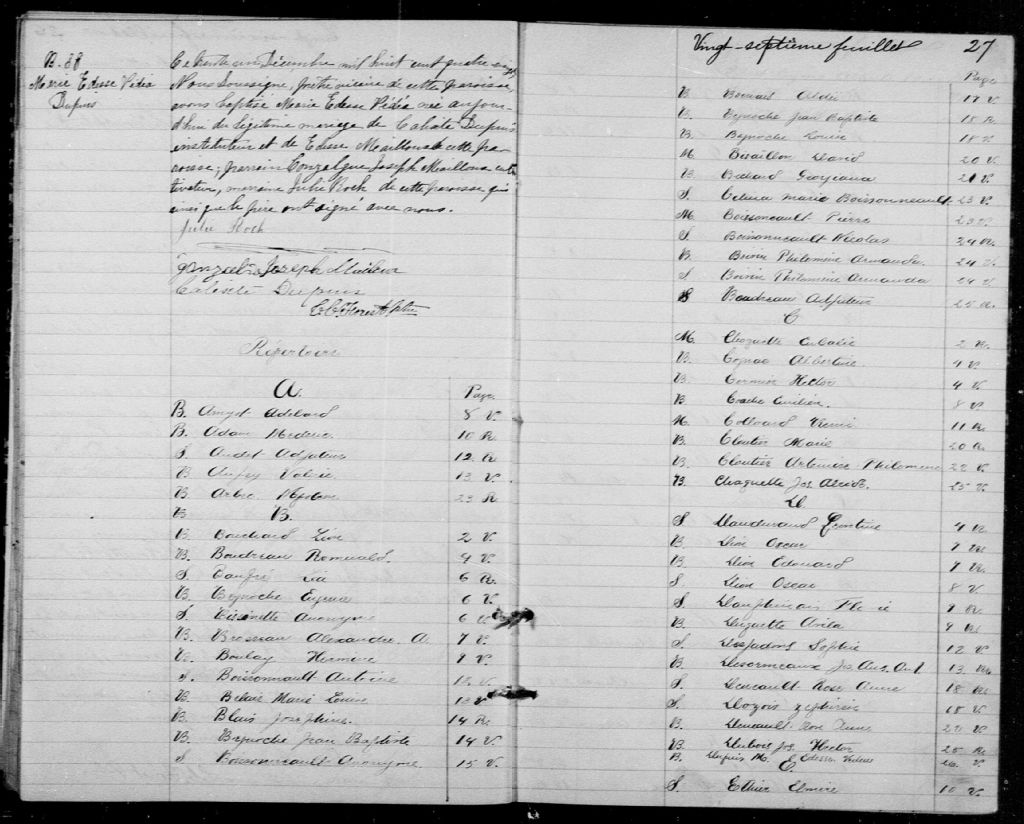 B. 38
Marie Edesse Vidia
Dupuis
Ce trente un Décembre mil huit cent quatre vingt
Nous Soussigné, prêtre vicaire de cette paroisse
avons baptisé Marie Edesse Vidia née aujour-
d'hui du légitime mariage de Calixte Dupuis
instituteur et de Edesse Mailloux de cette pa-
roisse; parrain Gonzalgue Joseph Mailloux cul-
tivateur, marraine Julie Roch de cette paroisse qui
ainsi que le père ont signé avec nous.
Julie Roch
Joseph
Calixte Dupuis
Ptre
Répertoire
A. Page
B. Amyot Adelard 8 V.
B. Adam Mederic 10 R.
S. Audet 12 R.
B. 13 V.
B. 23 R
B B.
B. Bouchard 2 V.
B. Boudreau Romuald 4 V.
S. 6 R.
B. Beyroche Eugenie 6 V.
S. Bissonette Anonyme 6 V
B. Brosseau Alexandre A. 7 V.
B. Boulay Hermine 9 V.
S. Boissonnault Antoine
B. Belair Marie Louise 13 V
B. Blais Josephine 14 R.
B. Beyroche Jean Baptiste 14 V.
S. Boissonneault Anonyme 15 V.
Vingt-septième feuillet 27
Page
B. 17 V.
B. Beyroche Jean Baptiste 18 R.
B. Beyroche Louise 18 V.
M. David 20 V.
B. Bedard Georgiana 21 V.
S. Maria Boissonneault 23 V.
M. Boissoneault Pierre 23 V.
S. Boissonneault Nicolas 24 R.
B. Boivin Philomène Armanda 24 V.
S. Boivin Philomène Armanda 24 V.
S Boudreau 25 R.
C
M. Choquette 2 R.
B. Cognac Albertine 4 V.
B. Cormier Hector 4 V.
B 8 V.
M. 11 R.
B. Cloutier Marie 20 R.
B. Cloutier Artemise Philomène 22 V.
B. Choquette Jos 25 V.
D.
S. 4 R
B. Dion Oscar 7 R
B. Dion Edouard 7 R.
S. Dion Oscar 8 V.
S. Dauphinais 9 R.
B. Duquette Avila 9 R
S. Desjadons Sophie 12 V.
B. Desormeaux Jos. Aug. Art 13 R.
S. Deneault Rose Anna 18 R
S. Dozois 18 V.
B. Deneault Rose 22 V.
B. Dubois Jos. Hector 25 R
B. Dupuis M. Edesse 26 V.
E.
S. Ethier Elmire 10 V.